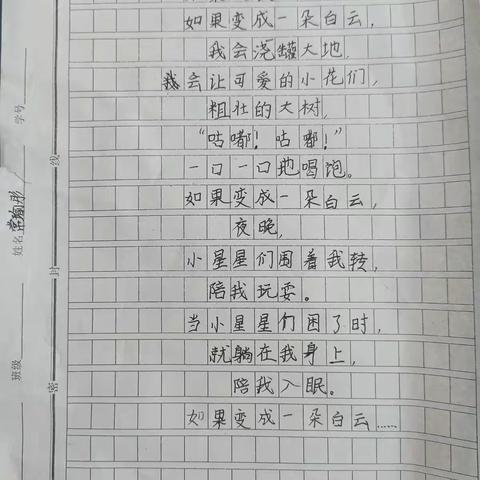 如果变成一朵白云，
我会浇罐大地，
我会让可爱的小花们，
粗壮的大树，
“咕嘟！咕嘟！”
一口一口地喝饱。
如果变成一朵白云，
夜晚，
小星星们围着我转，
陪我玩耍。
当小星星们困了时，
就躺在我身上，
陪我入眠。
如果变成一朵白云……
学号
姓名
班级
线
封
密